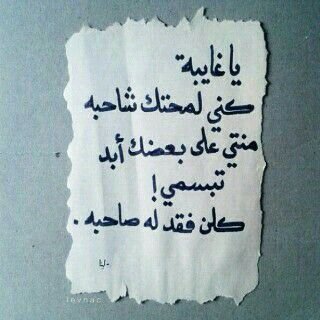 يا غايبة
كني لمحتك شاحبه
منتي على بعضك أبد
تبسمي !
كلن فقد له صاحبه .
levnac